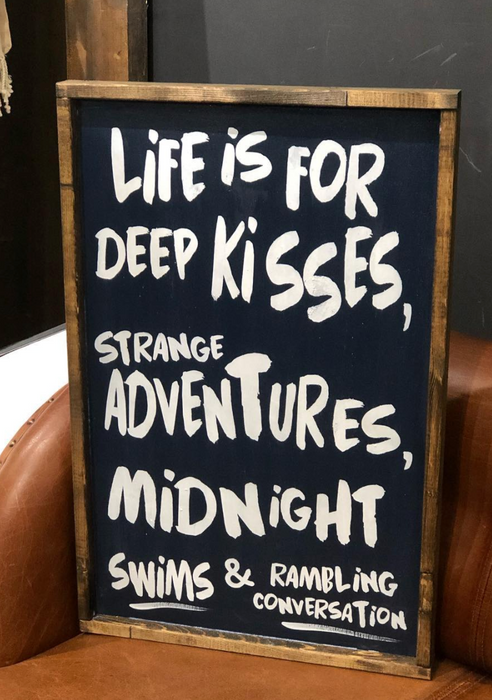 LiFE iS FOR
DEEP KiSSES,
STRANGE
ADVENTURES,
MiDNiGHT
SWiMS & RAMBLiNG
CONVERSATiON